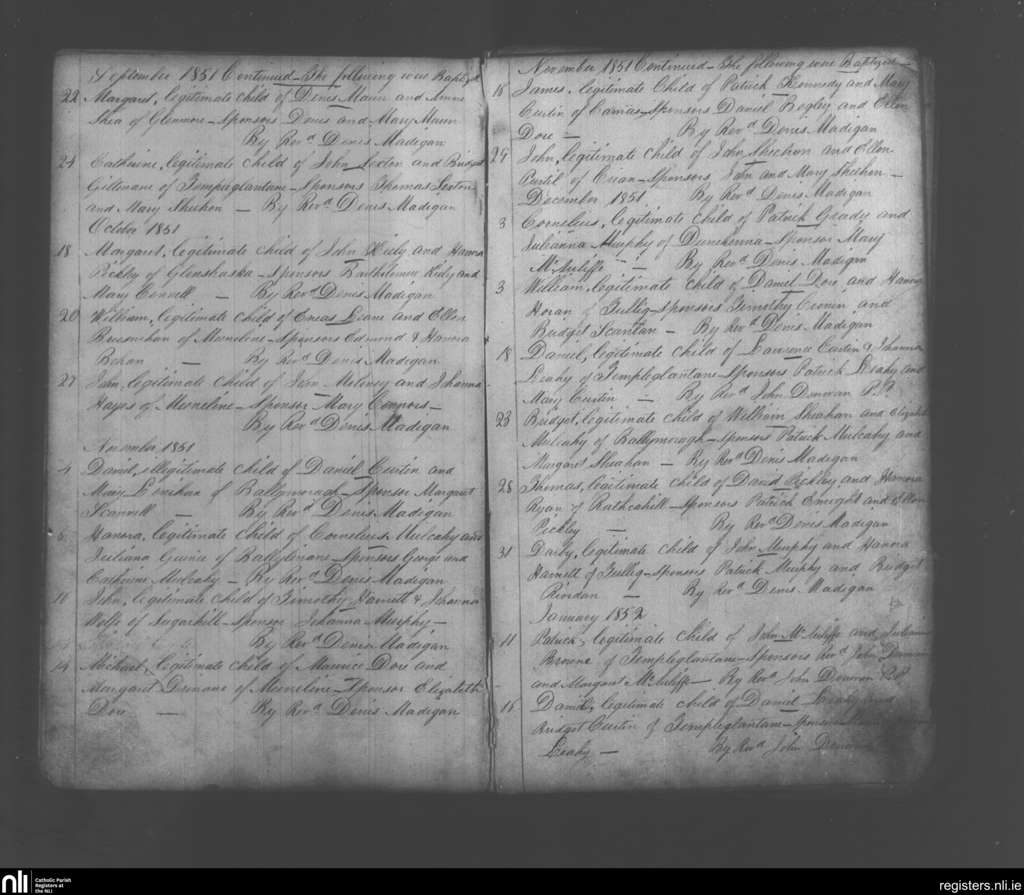 September 1851 Continued - The following were Baptized
22 Margaret, legitimate child of Denis Maun and Anne
Shea of Glenmore - Sponsors Denis and Mary Maun
By Revd Denis Madigan
24 Catharine, legitimate child of John Sexton and Bridget
Giltenane of Templeglantane - Sponsors Thomas Sexton
and Mary Sheehan - By Revd Denis Madigan
October 1851
18 Margaret, legitimate child of John Kiely and Hanora
of Glenshaska - Sponsors Bartholemew Kiely and
Mary Connell - By Revd Denis Madigan
20 William, legitimate child of Eneas Leane and Ellen
Bresnihan of Meeneline - Sponsors Edmund & Hanora
Bohan - By Revd Denis Madigan
27 legitimate child of John Moloney and Johanna
Hayes of Meeneline - Sponsor Mary Connors -
By Revd Denis Madigan
November 1851
4 David, illegitimate child of Daniel Curtin and
Mary Lenihan of Ballymorogh - Sponsor Margaret
Scannell - By Revd Denis Madigan
6 Hanora, legitimate Child of Cornelius Mulcahy and
Juliana Guinee of Ballylinane - Sponsors George and
Catherine Mulcahy - By Revd Denis Madigan
10 John, legitimate Child of Timothy Harnett & Johanna
Wolfe of Sugarhill - Sponsor Johanna Murphy -
By Revd Denis Madigan
14 Michael, legitimate child of Maurice Dore and
Margaret Drinane of Meeneline - Sponsor Elizabeth
Dore - By Revd Denis Madigan
November 1851 Continued - The following were Baptized -
16 James, legitimate Child of Patrick Kennedy and Mary
Curtin of Camas - Sponsors Daniel Begley and Ellen
Dore - By Revd Denis Madigan
29 John, legitimate Child of John Sheehan and Ellen
Curtil of Cuan - Sponsors John and Mary Sheehan -
December 1851 By Revd Denis Madigan
3 Cornelius, legitimate child of Patrick Geady and
Julianna Murphy of - Sponsor Mary
McAuliffe - By Revd Denis Madigan
3 William, legitimate child of Daniel Dore and Hanora
Horan of Tullig - Sponsors Timothy Cronin and
Bridget Scanlan - By Revd Denis Madigan
18 Daniel, legitimate child of Lawrence Curtin & Johanna
Leahy of Templeglantane - Sponsors Patrick Leahy and
Mary Curtin - By Revd John Donovan P.P.
23 Bridget, legitimate child of William Sheahan and Elizabeth
Mulcahy of Ballymorogh - Sponsors Patrick Mulcahy and
Margaret Sheahan - By Revd Denis Madigan
28 Thomas, legitimate child of David Pickley and Hanora
Ryan of Rathcahill - Sponsors Patrick Enright and Ellen
Pickley - By Revd Denis Madigan
31 Darby, legitimate child of John Murphy and Hanna
Harnett of Tullig - Sponsors Patrick Murphy and Bridget
Riordan - By Revd Denis Madigan
January 1852
11 Patrick, legitimate child of John McAuliffe and Julian
Browne of Templeglantane - Sponsors Revd John Donovan
and Margaret McAuliffe - By Revd John Donovan P.P.
15 David, legitimate child of Daniel Leahy and
Bridget Curtin of Templeglantane - Sponsors
Leahy - By Revd John Donovan
nli
Catholic Parish
Registers at
the NLI
registers.nli.ie